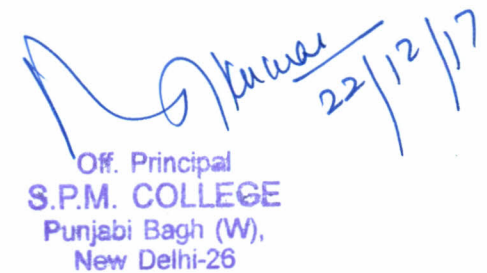 Kumar
22/12/17
Off. Principal
S.P.M. COLLEGE
Punjabi Bagh (W),
New Delhi-26